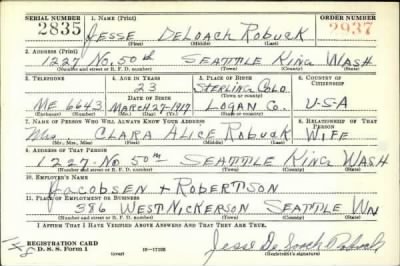 SERIAL NUMBER 1. NAME (Print) ORDER NUMBER
2835 JESSE DELOACH ROBUCK 2937
(First) (Middle) (Last)
2. ADDRESS (Print)
1227 No. 50th SEATTLE KING WASH
(Number and street or R. F. D. number) (Town) (County) (State)
3. TELEPHONE 4. AGE IN YEARS 5. PLACE OF BIRTH 6. COUNTRY OF CITIZENSHIP
23 STERLING COLO
(Town or county)
DATE OF BIRTH
ME 6643 MARCH 27-1917 LOGAN CO. U-S-A
(Exchange) (Number) (Mo.) (Day) (Yr.) (State or country)
7. NAME OF PERSON WHO WILL ALWAYS KNOW YOUR ADDRESS 8. RELATIONSHIP OF THAT PERSON
Mrs. CLARA ALICE ROBUCK WIFE
(Mr., Mrs., Miss) (First) (Middle) (Last)
9. ADDRESS OF THAT PERSON
1227-No 50TH SEATTLE KING WASH
(Number and street or R. F. D. number) (Town) (County) (State)
10. EMPLOYER'S NAME
JACOBSEN + ROBERTSON
11. PLACE OF EMPLOYMENT OR BUSINESS
386 WEST NICKERSON SEATTLE WN
(Number and street or R. F. D. number) (Town) (County) (State)
I AFFIRM THAT I HAVE VERIFIED ABOVE ANSWERS AND THAT THEY ARE TRUE.
REGISTRATION CARD
D. S. S. Form 1 16-17105 Jesse DeLoach Robuck
(Registrant's signature)